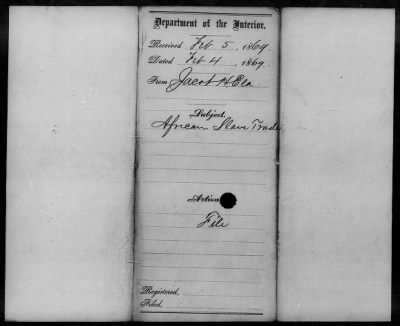 Department of the Interior.
Received Feb 5, 1869.
Dated Feb 4, 1869.
From Jacob H Ela
Subject
African Slave Trade
Action
File
Registered,
Filed,